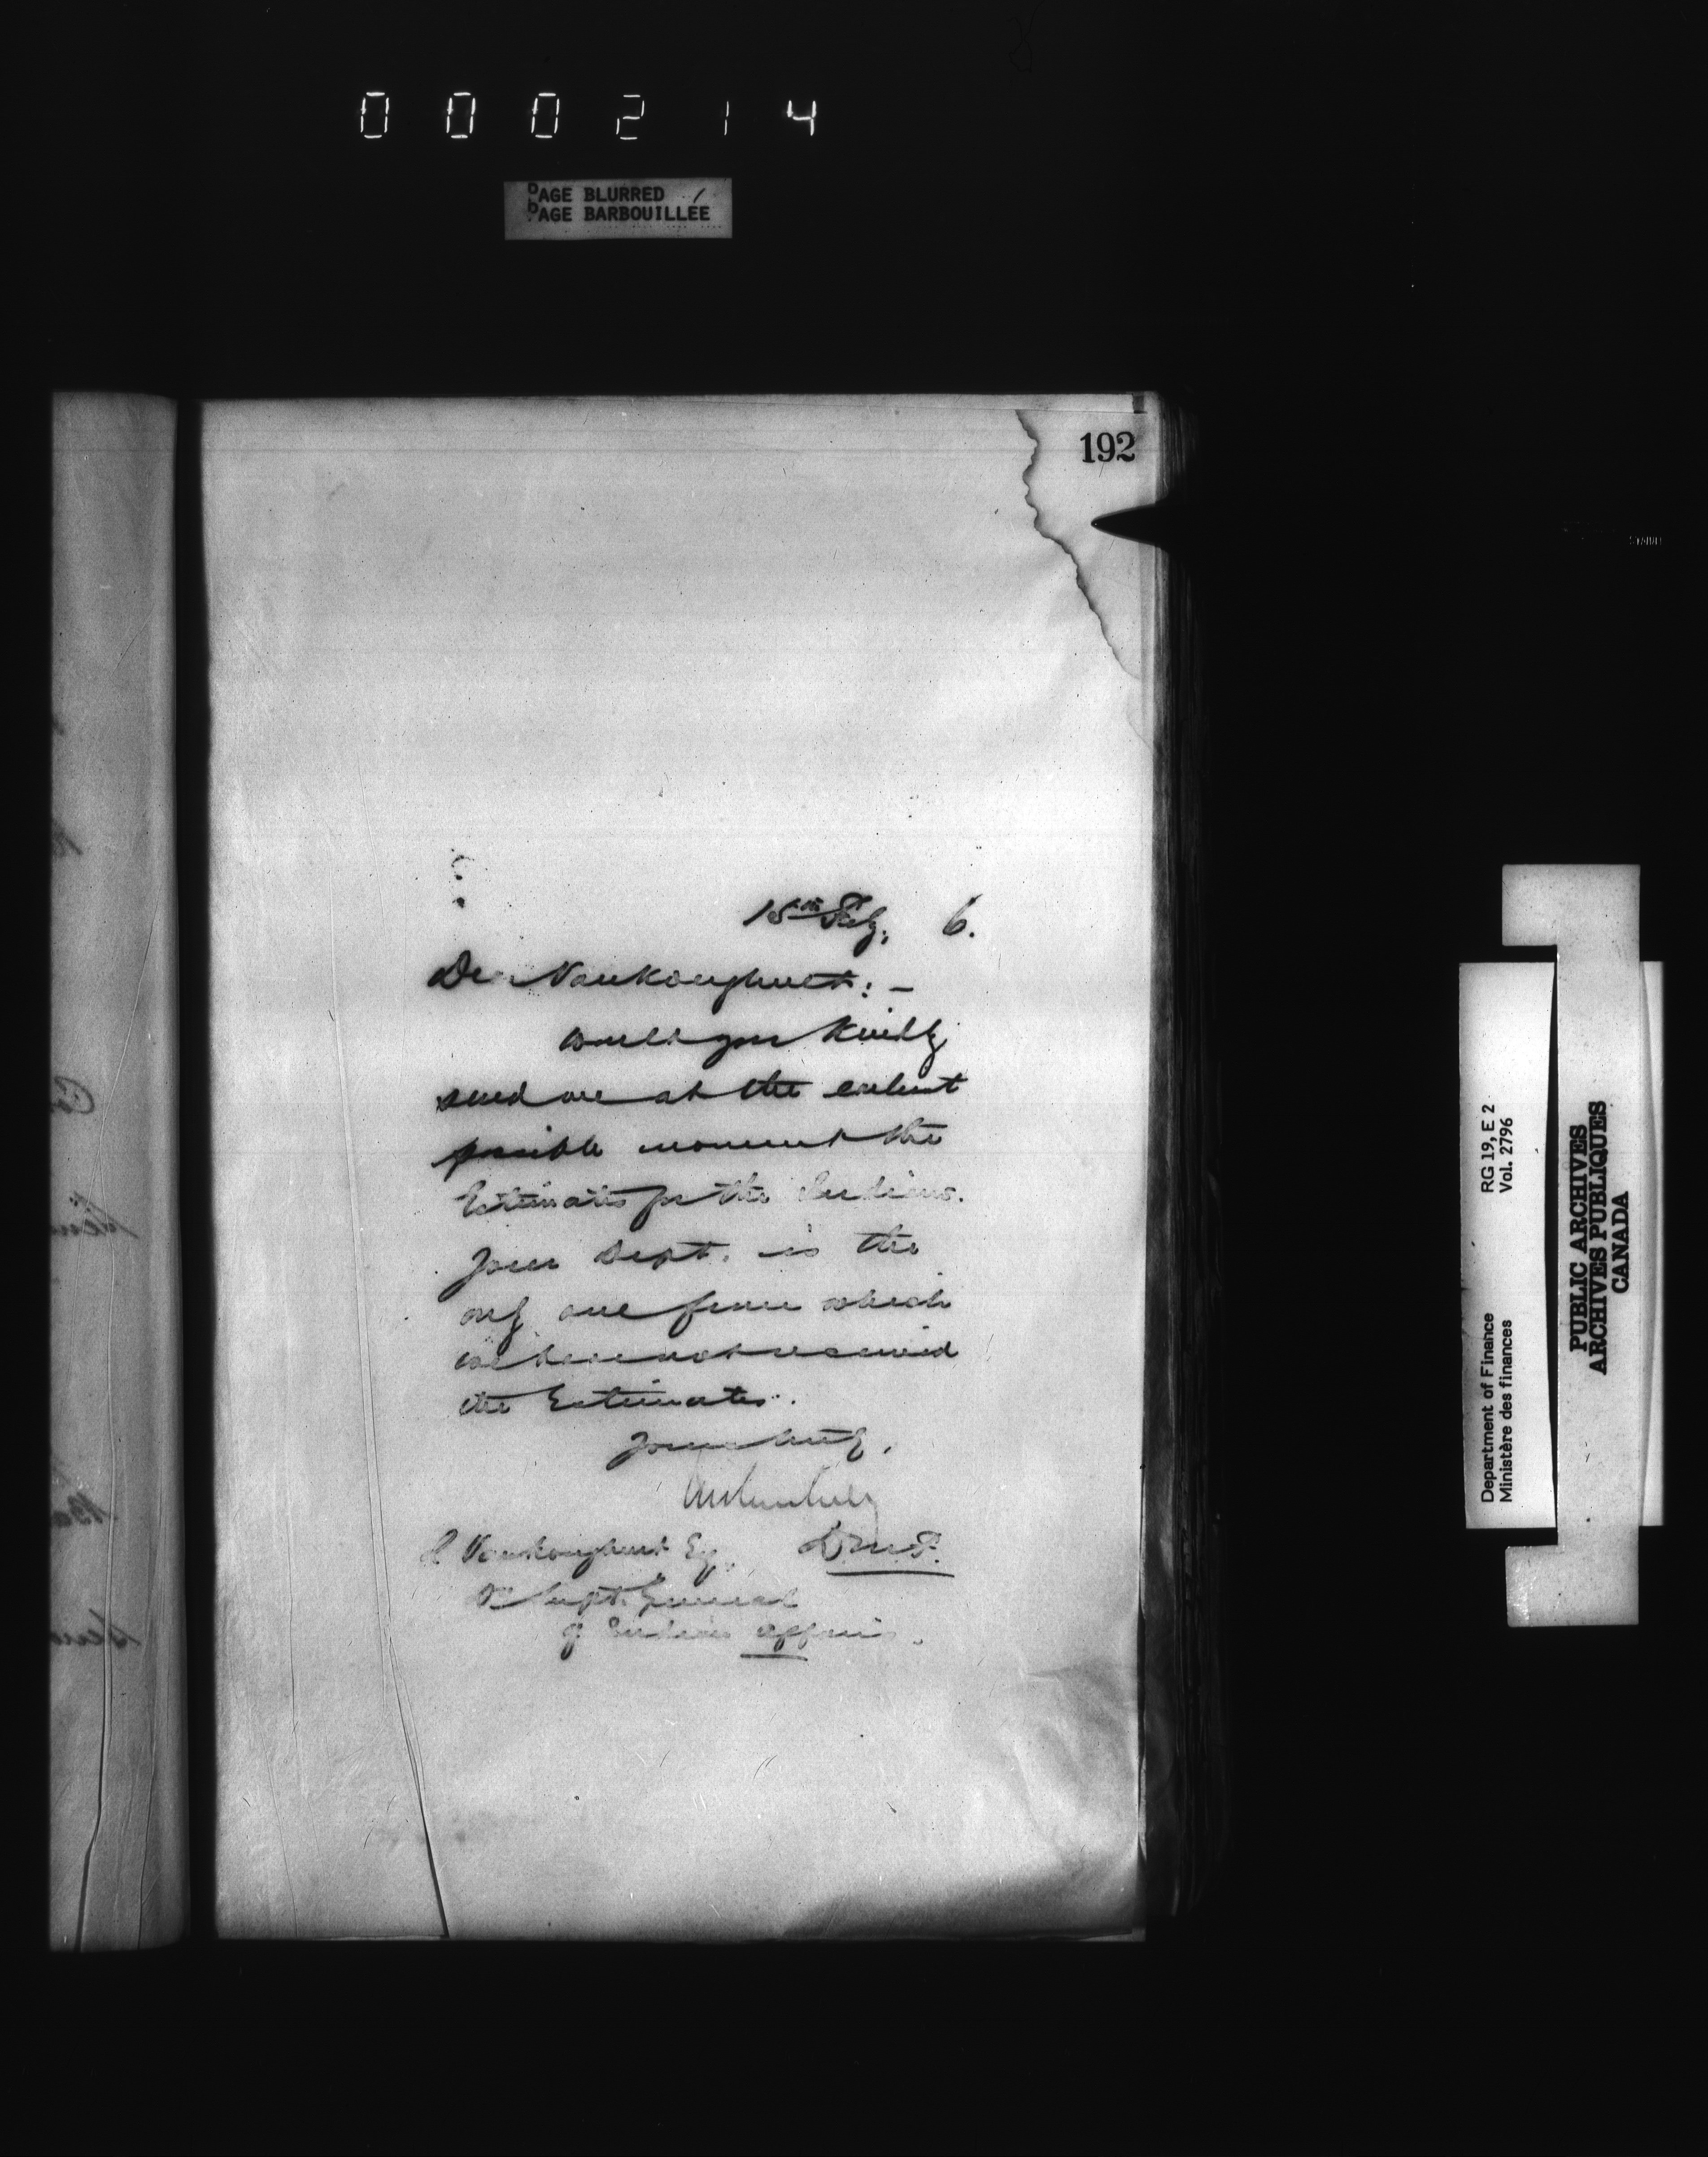 000214
PAGE BLURRED
PAGE BARBOUILLÉE
192
15th Feby, 6.
Dear Vankoughnet: -
Would you kindly
send me at the earliest
possible moment the
Estimates for the Indians.
Your Dept. is the
only one from which
we have not received
the Estimates.
Yours truly,
D.M.F.
L Vankoughnet Esq.
Supt. General
of Indian Affairs.
Department of Finance RG 19, E 2
Ministère des finances Vol. 2796
PUBLIC ARCHIVES
ARCHIVES PUBLIQUES
CANADA